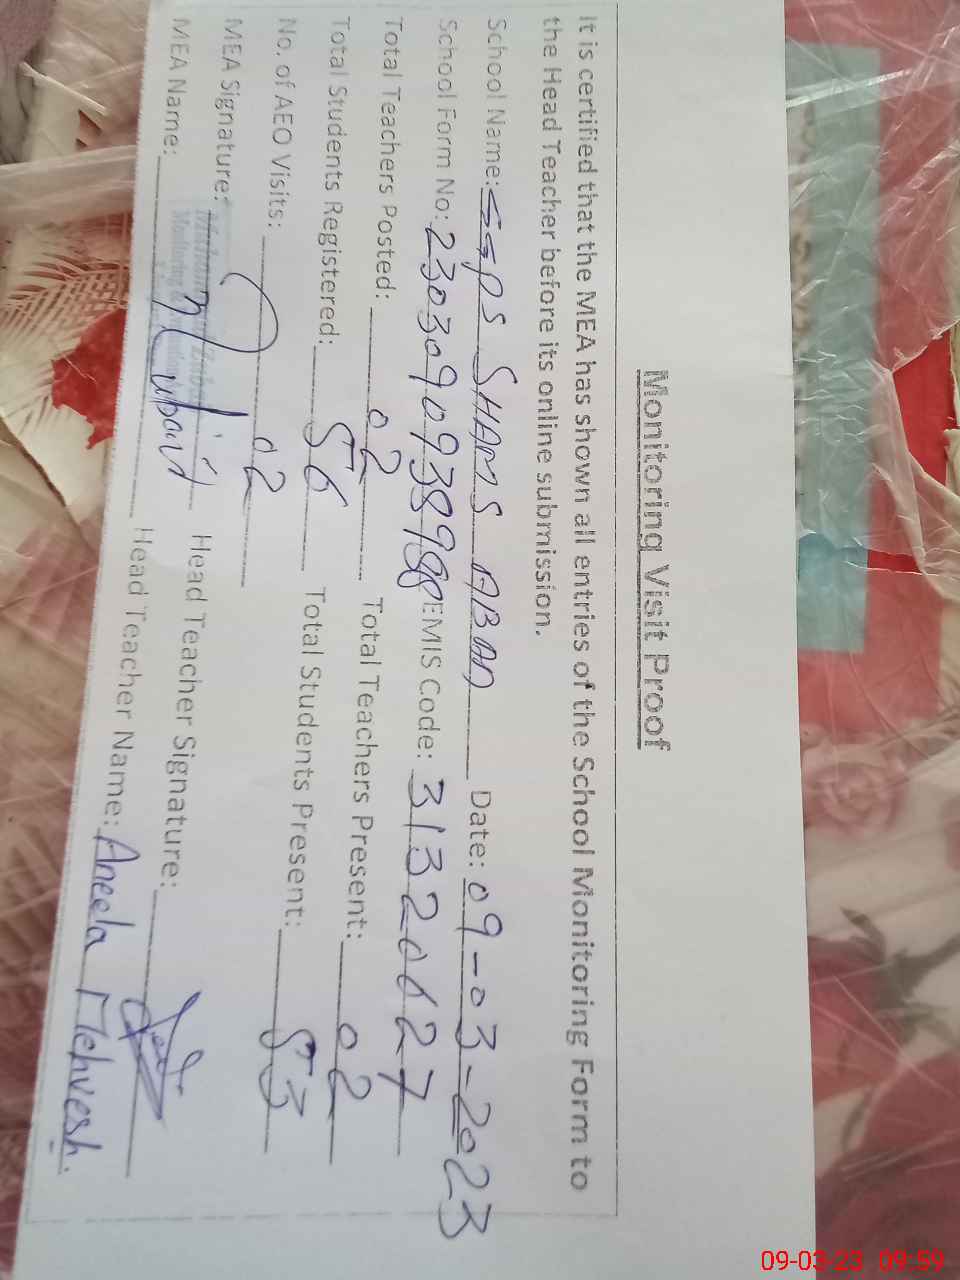 Monitoring Visit Proof
It is certified that the MEA has shown all entries of the School Monitoring Form to
the Head Teacher before its online submission.
School Name: SHAMS ABAD Date: 09-03-2023
School Form No: EMIS Code: 31320627
Total Teachers Posted: 02 Total Teachers Present: 02
Total Students Registered: 56 Total Students Present: 53
No. of AEO Visits: 02
MEA Signature: Head Teacher Signature:
MEA Name: Head Teacher Name: Aneela Mehvesh.
09-03-23 09:59